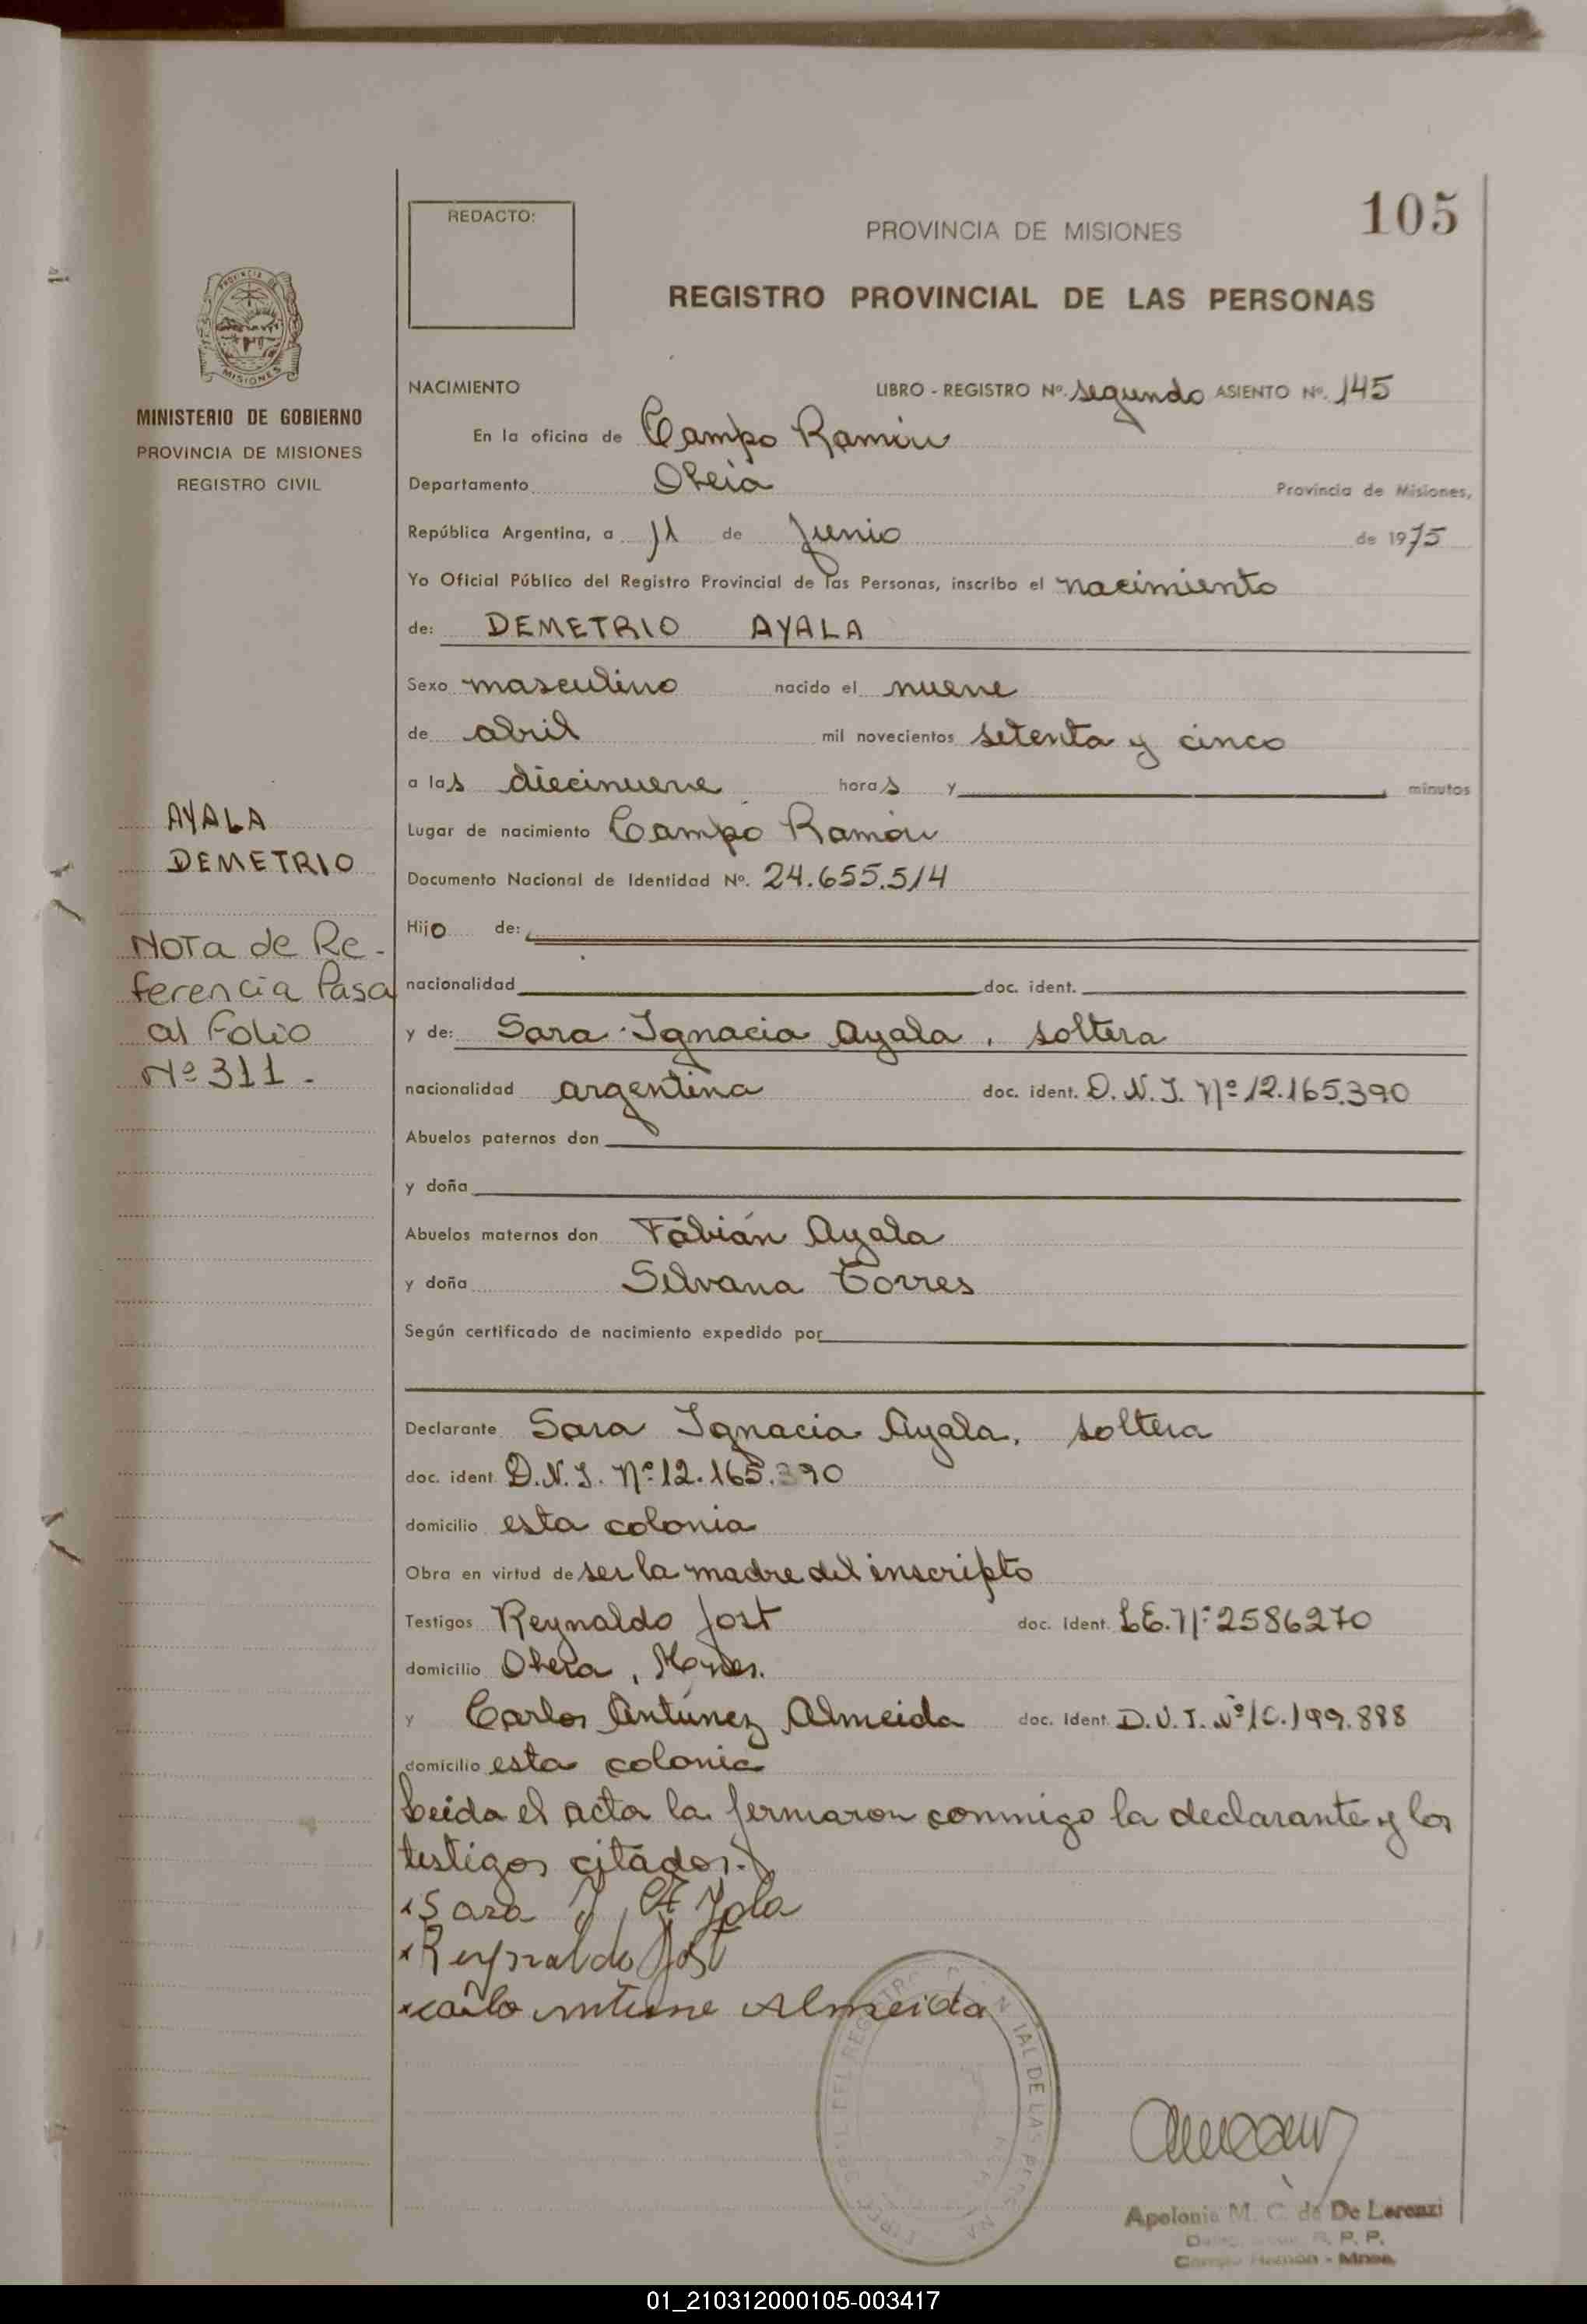 105
REDACTO:
PROVINCIA DE MISIONES
REGISTRO PROVINCIAL DE LAS PERSONAS
PROVINCIA DE
MISIONES
MINISTERIO DE GOBIERNO
PROVINCIA DE MISIONES
REGISTRO CIVIL
NACIMIENTO LIBRO - REGISTRO Nº. segundo ASIENTO Nº. 145
En la oficina de Campo Ramón
Departamento Oberá Provincia de Misiones,
República Argentina, a 11 de Junio de 1975
Yo Oficial Público del Registro Provincial de las Personas, inscribo el nacimiento
de: DEMETRIO AYALA
Sexo masculino nacido el nueve
de abril mil novecientos setenta y cinco
a las diecinueve horas y minutos
Lugar de nacimiento Campo Ramón
Documento Nacional de Identidad Nº. 24.655.514
Hijo de:
nacionalidad doc. ident.
y de: Sara Ignacia Ayala, soltera
nacionalidad argentina doc. ident. D.N.I. Nº 12.165.390
Abuelos paternos don
y doña
Abuelos maternos don Fabián Ayala
y doña Silvana Torres
Según certificado de nacimiento expedido por
Declarante Sara Ignacia Ayala, soltera
doc. ident. D.N.I. Nº 12.165.390
domicilio esta colonia
Obra en virtud de ser la madre del inscripto
Testigos Reynaldo Jost doc. Ident. L.E. Nº 2586270
domicilio Oberá, Mnes.
y Carlos Antúnez Almeida doc. Ident. D.N.I. Nº 10.199.888
domicilio esta colonia
Leida el acta la firmaron conmigo la declarante y los
testigos citados.
Sara I Ayala
Reynaldo Jost
carlo antune Almeida
AYALA
DEMETRIO
Nota de Re-
ferencia Pasa
al Folio
Nº 311.-
DEL REGISTRO PROVINCIAL DE LAS PERSONAS
Apolonia M. C. de De Lorenzi
R. P. P.
Campo Ramón - Mnes.
01_210312000105-003417